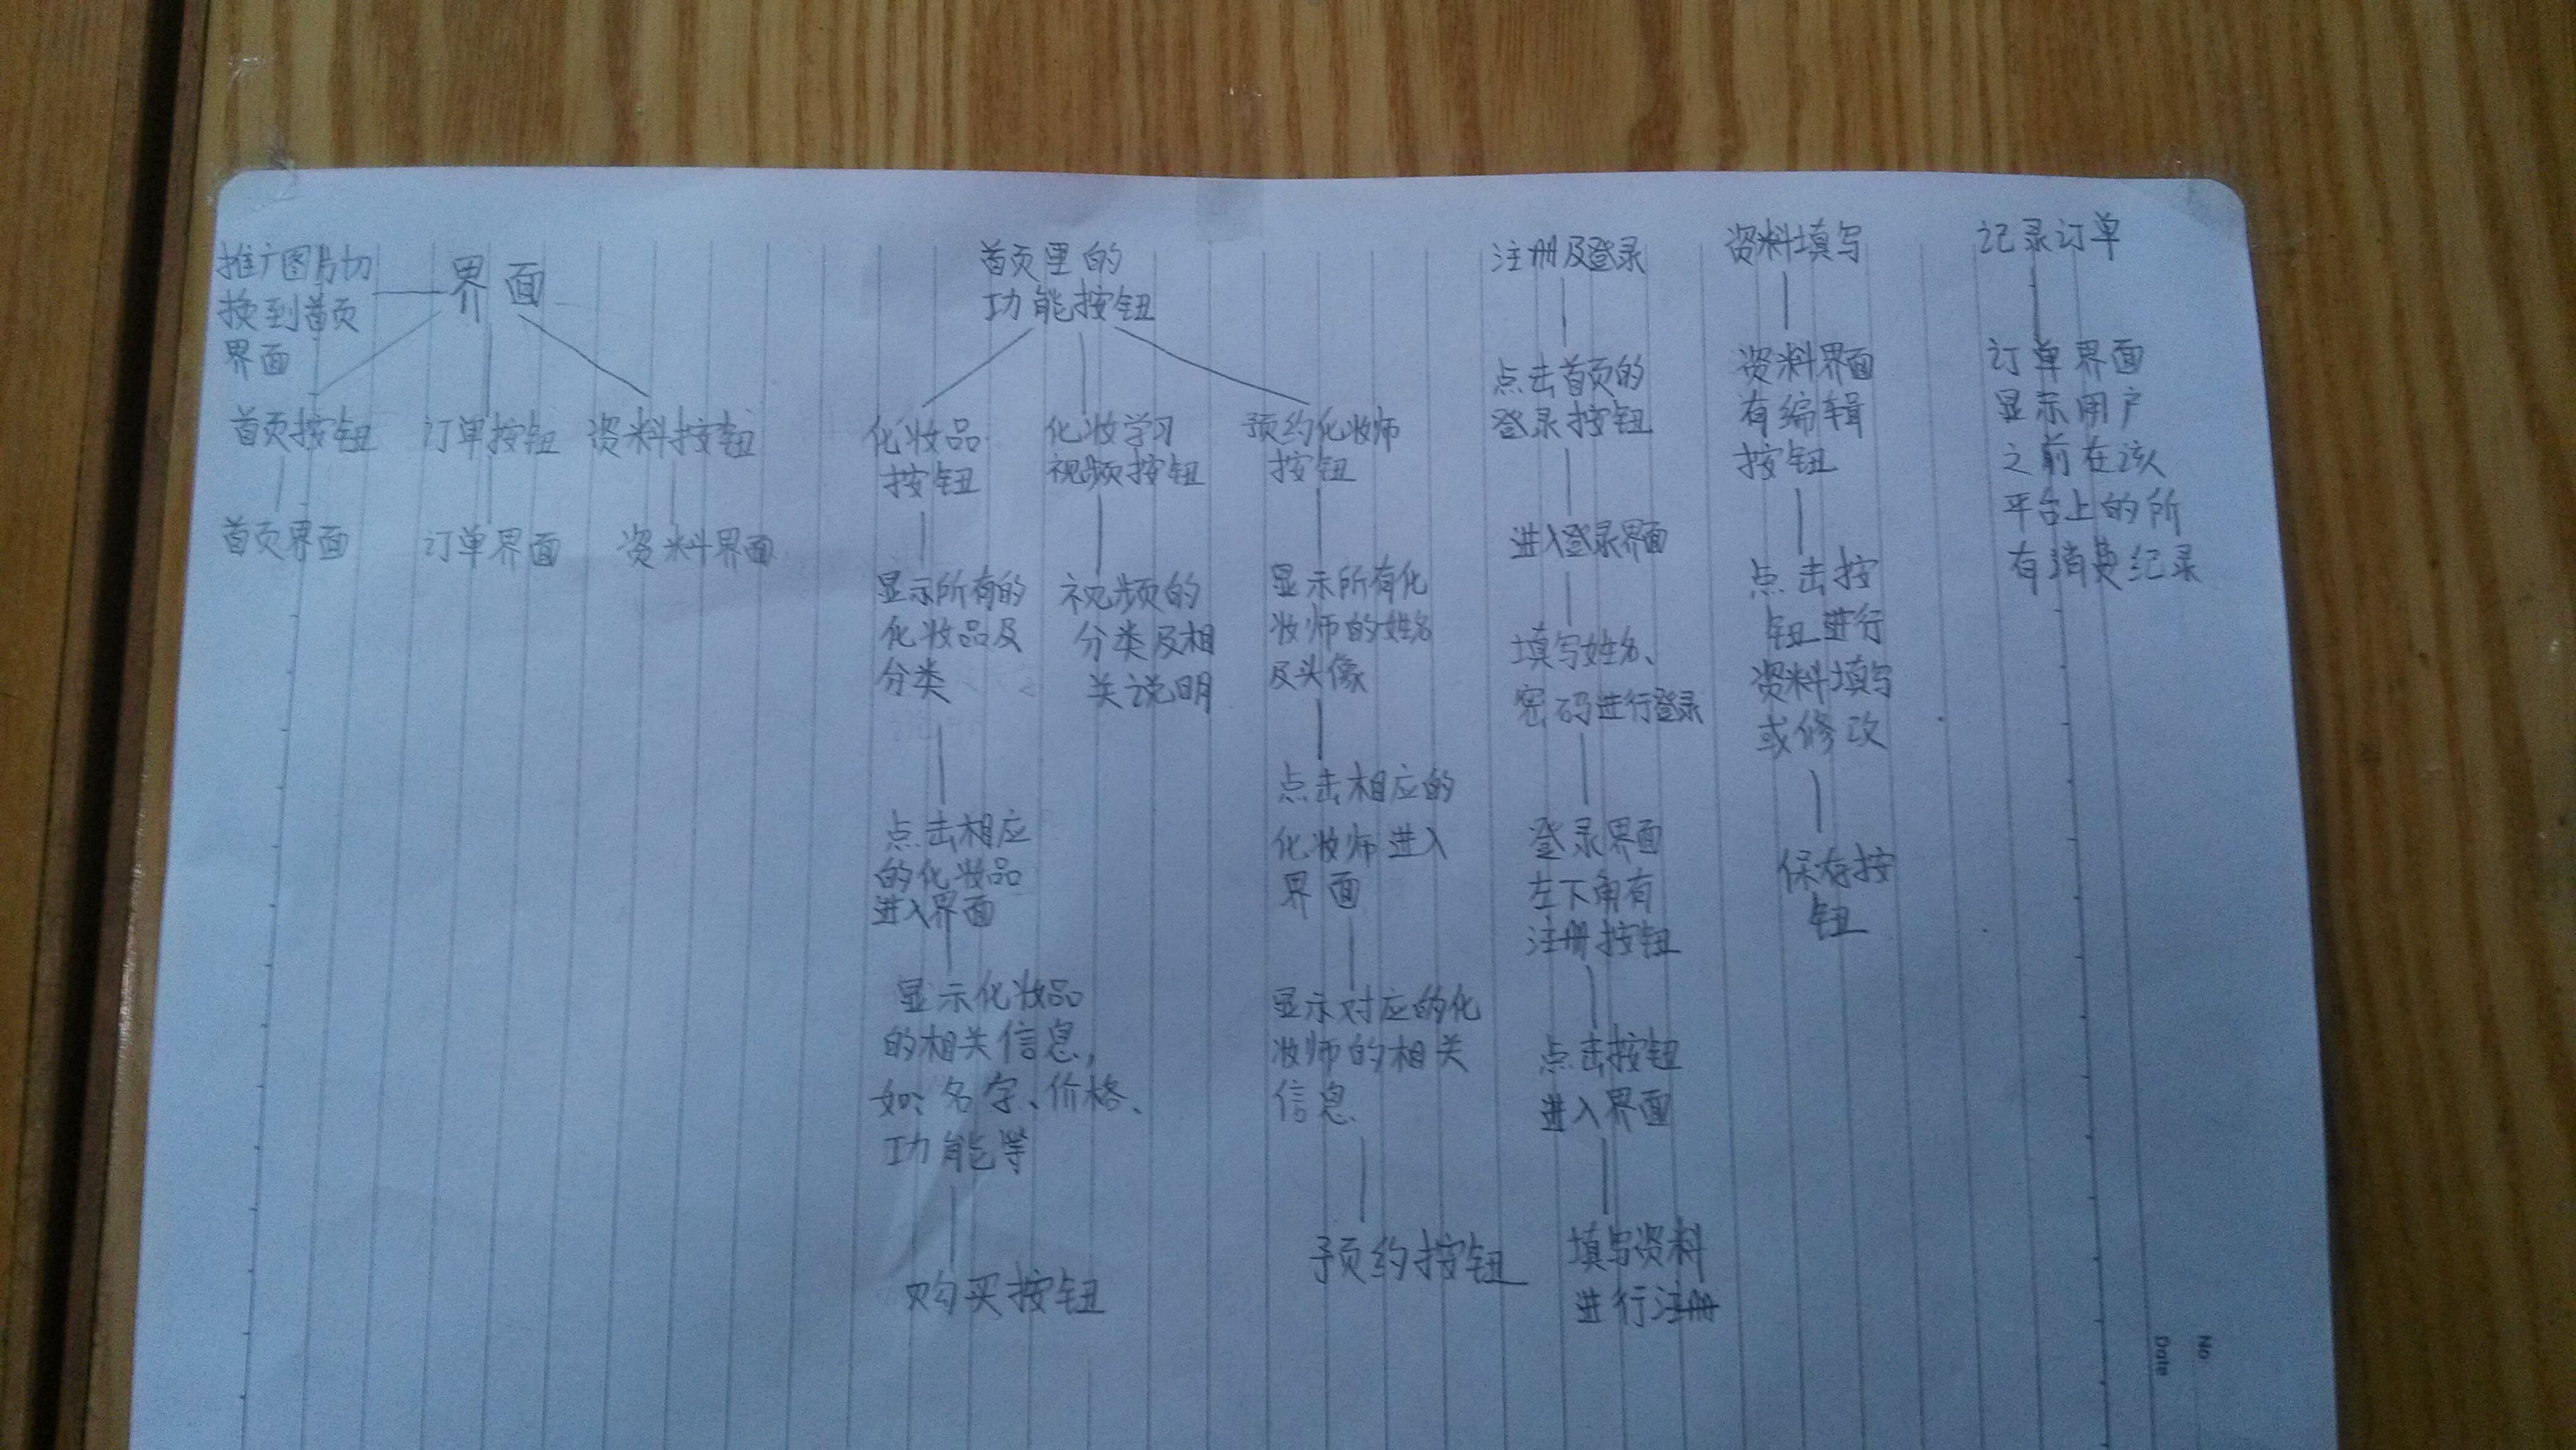 推广图片切
换到首页
界面
界面
首页按钮
订单按钮
资料按钮
首页界面
订单界面
资料界面
首页里的
功能按钮
化妆品
按钮
显示所有的
化妆品及
分类
点击相应
的化妆品
进入界面
显示化妆品
的相关信息,
如:名字、价格、
功能等
购买按钮
化妆学习
视频按钮
视频的
分类及相
关说明
预约化妆师
按钮
显示所有化
妆师的姓名
及头像
点击相应的
化妆师进入
界面
显示对应的化
妆师的相关
信息.
预约按钮
注册及登录
点击首页的
登录按钮
进入登录界面
填写姓名、
密码进行登录
登录界面
左下角有
注册按钮
点击按钮
进入界面
填写资料
进行注册
资料填写
资料界面
有编辑
按钮
点击按
钮进行
资料填写
或修改
保存按
钮
记录订单
订单界面
显示用户
之前在该
平台上的所
有消费纪录
No
Date